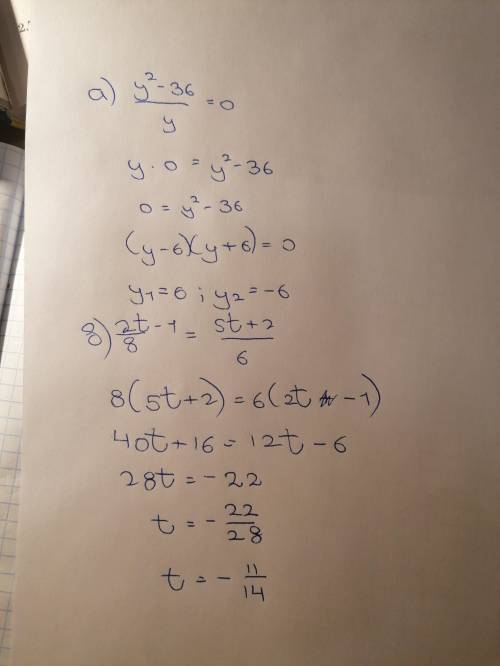 а) (y² - 36)/y = 0
y · 0 = y² - 36
0 = y² - 36
(y-6)(y+6) = 0
y1 = 6 ; y2 = -6
8) (2t - 1)/8 = (5t + 2)/6
8(5t+2) = 6(2t - 1)
40t + 16 = 12t - 6
28t = - 22
t = - 22/28
t = - 11/14